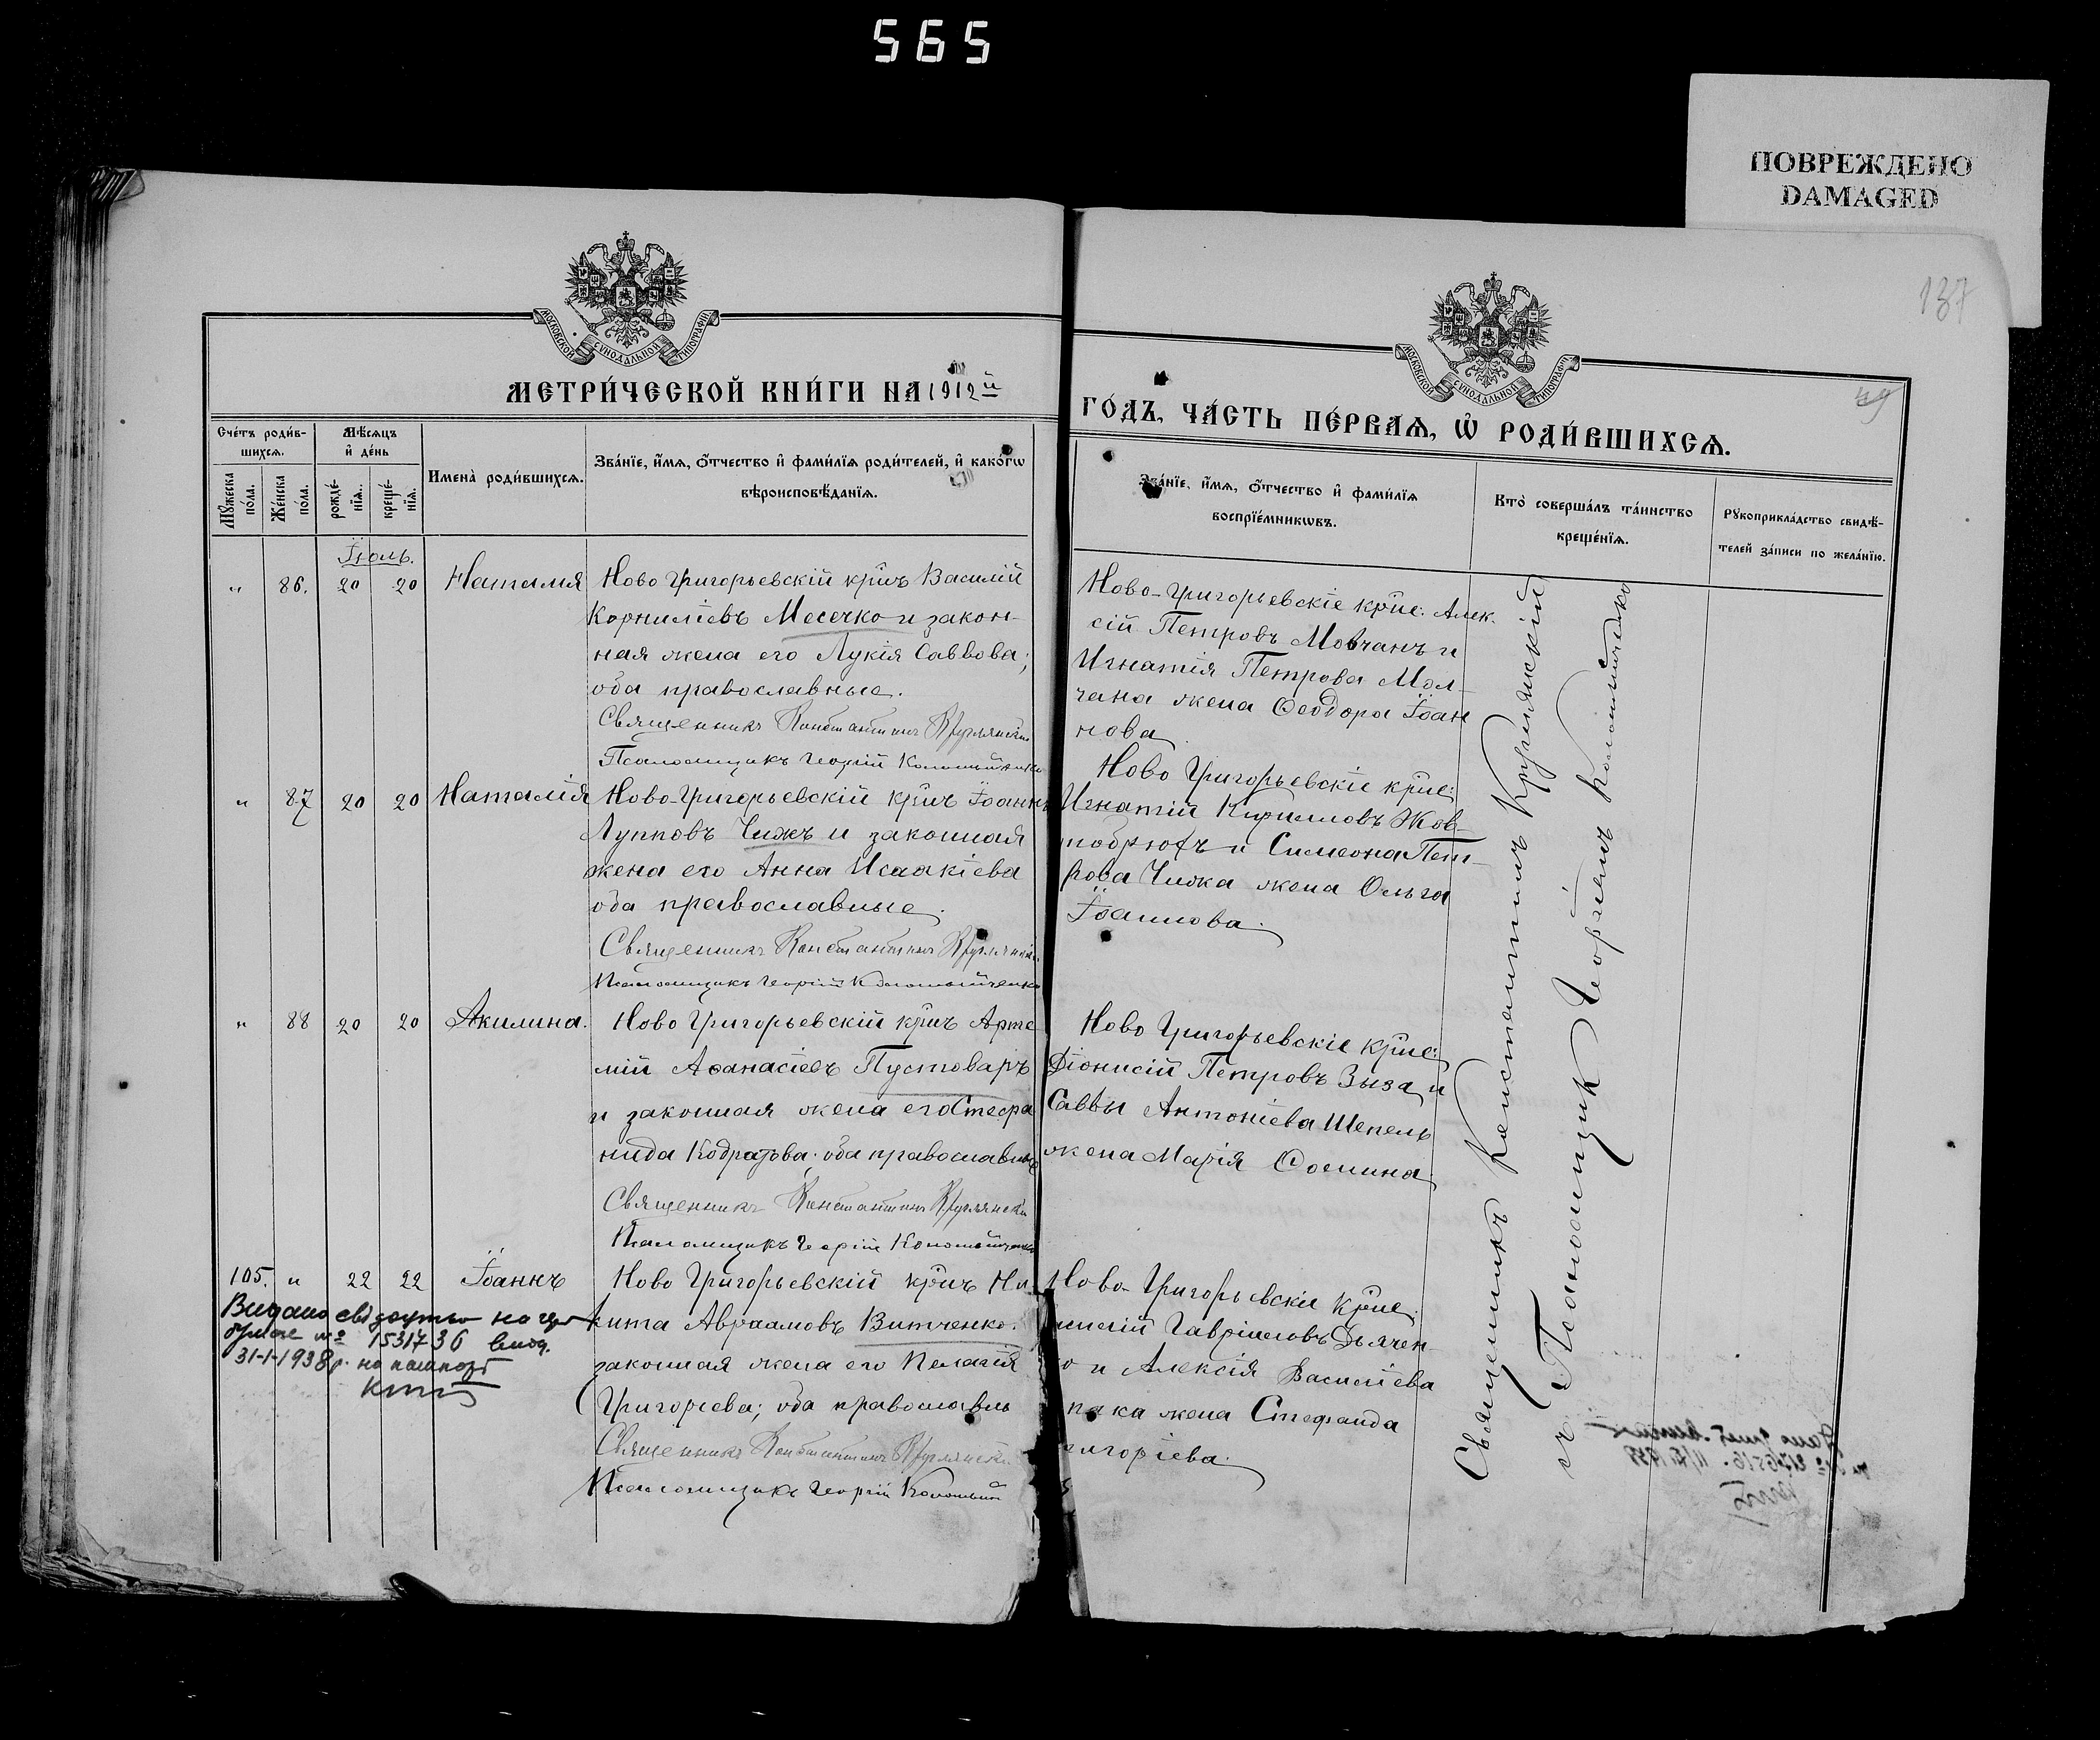 565
ПОВРЕЖДЕНО
DAMAGED
137
49
МОСКОВСКОЙ СѴНОДАЛЬНОЙ ТИПОГРАФІИ
МОСКОВСКОЙ СѴНОДАЛЬНОЙ ТИПОГРАФІИ
МЕТРИ́ЧЕСКОЙ КНИ́ГИ НА 1912й
ГО́ДЪ, ЧА́СТЬ ПЕ́РВАѦ, Ѽ РОДИ́ВШИХСѦ.
Сче́тъ роди́в-
шихсѧ.
Мꙋ́жеска по́ла.
Же́нска по́ла.
Мѣ́сѧцъ и҆ де́нь
рожде́-нїѧ.
креще́-нїѧ.
Имена̀ роди́вшихсѧ.
Зва́нїе, и҆́мѧ, ѻ҆́тчество и҆ фами́лїѧ роди́телей, и҆ како́гѡ
вѣроисповѣ́данїѧ.
Зва́нїе, и҆́мѧ, ѻ҆́тчество и҆ фами́лїѧ
воспрїе́мникѡвъ.
Кто̀ соверша́лъ та́инство
креще́нїѧ.
Рꙋкоприкла́дство свидѣ́-
телей за́писи по жела́нїю.
Іюль.
" 86. 20 20 Наталія Ново Григорьевскій крнъ Василій
Корниліевъ Месечко и закон-
ная жена его Лукія Саввова;
оба православные.
Священникъ Константинъ Круглянскій
Псаломщикъ Георгій Коломійченко
Ново-Григорьевскіе крне: Алек-
сій Петровъ Мовчанъ и
Игнатія Петрова Мол-
чана жена Ѳеодора Іоан
нова
" 87 20 20 Наталія Ново-Григорьевскій крнъ Іоаннъ
Лупповъ Чижъ и законная
жена его Анна Исаакіева
оба православные.
Священникъ Константинъ Круглянскій
Псаломщикъ Георгій Коломійченко
Ново Григорьевскіе крне:
Игнатій Кирилловъ Жов-
тобрюхъ и Симеона Пет-
рова Чижа жена Ольга
Іоаннова.
" 88 20 20 Акилина. Ново Григорьевскій крнъ Арте
мій Аѳанасіевъ Пустоваръ
и законная жена его Стефа
нида Кодратова; оба православные
Священникъ Константинъ Круглянскій
Псаломщикъ Георгій Коломійченко
Ново Григорьевскіе крне:
Діонисій Петровъ Выза и
Саввы Антоніева Шепель
жена Марія Ѳомина
105. " 22 22 Іоаннъ Ново Григорьевскій крнъ Ни
кита Авраамовъ Витченко.
законная жена его Пелагія
Григоріева; оба православн
Священникъ Константинъ Круглянскі
Псаломщикъ Георгій Коломій
Ново-Григорьевскіе крне:
Гавріиловъ Дьячен-
о и Алексія Василіева
пака жена Стефанида
ригоріева.
Видано на
№ 1531736
31-1-1938р. на пашпорт
Священникъ Константинъ Круглянскій
Псаломщикъ Георгій Коломійченко